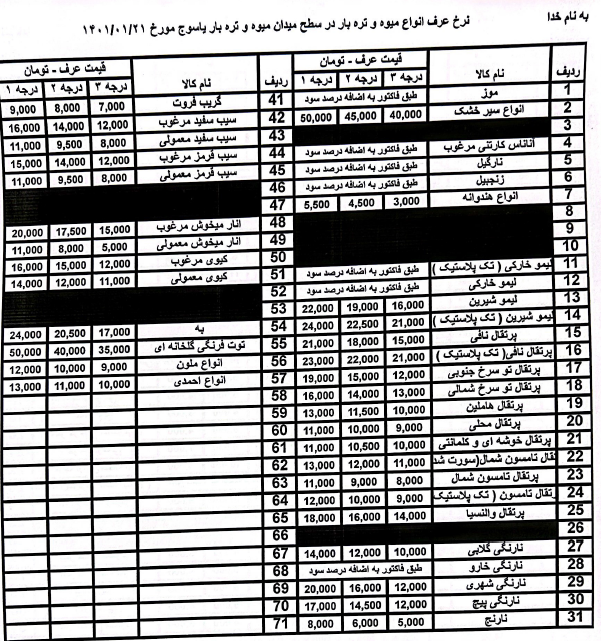 به نام خدا
نرخ عرف انواع میوه و تره بار در سطح میدان میوه و تره بار یاسوج مورخ ۱۴۰۱/۰۱/۲۱
ردیف نام کالا قیمت عرف - تومان
درجه ۳ درجه ۲ درجه ۱
1 موز طبق فاکتور به اضافه درصد سود
2 انواع سیر خشک 40,000 45,000 50,000
3
4 آناناس کارتنی مرغوب طبق فاکتور به اضافه درصد سود
5 نارگیل طبق فاکتور به اضافه درصد سود
6 زنجبیل طبق فاکتور به اضافه درصد سود
7 انواع هندوانه 3,000 4,500 5,500
8
9
10
11 لیمو خارکی ( تک پلاستیک ) طبق فاکتور به اضافه درصد سود
12 لیمو خارکی طبق فاکتور به اضافه درصد سود
13 لیمو شیرین 16,000 19,000 22,000
14 لیمو شیرین ( تک پلاستیک ) 21,000 22,500 24,000
15 پرتقال نافی 15,000 18,000 21,000
16 پرتقال نافی( تک پلاستیک ) 21,000 22,000 23,000
17 پرتقال تو سرخ جنوبی 12,000 15,000 19,000
18 پرتقال تو سرخ شمالی 13,000 14,000 16,000
19 پرتقال هاملین 10,000 11,500 13,000
20 پرتقال محلی 9,000 10,000 11,000
21 پرتقال خوشه ای و کلمانتی 10,000 10,500 11,000
22 تقال تامسون شمال(سورت شد 11,000 12,000 13,000
23 پرتقال تامسون شمال 8,000 9,000 11,000
24 رتقال تامسون ( تک پلاستیک 9,000 10,000 12,000
25 پرتقال والنسیا 14,000 16,000 18,000
26
27 نارنگی گلابی 10,000 12,000 14,000
28 نارنگی خارو طبق فاکتور به اضافه درصد سود
29 نارنگی شهری 12,000 16,000 20,000
30 نارنگی پیچ 12,000 14,500 17,000
31 نارنج 5,000 6,000 8,000
ردیف نام کالا قیمت عرف - تومان
درجه ۳ درجه ۲ درجه ۱
41 گریپ فروت 7,000 8,000 9,000
42 سیب سفید مرغوب 12,000 14,000 16,000
43 سیب سفید معمولی 8,000 9,500 11,000
44 سیب قرمز مرغوب 12,000 14,000 15,000
45 سیب قرمز معمولی 8,000 9,500 11,000
46
47
48 انار میخوش مرغوب 15,000 17,500 20,000
49 انار میخوش معمولی 5,000 8,000 11,000
50 کیوی مرغوب 12,000 15,000 16,000
51 کیوی معمولی 11,000 12,000 14,000
52
53
54 به 17,000 20,500 24,000
55 توت فرنگی گلخانه ای 35,000 40,000 50,000
56 انواع ملون 9,000 10,000 12,000
57 انواع احمدی 10,000 11,000 13,000
58
59
60
61
62
63
64
65
66
67
68
69
70
71